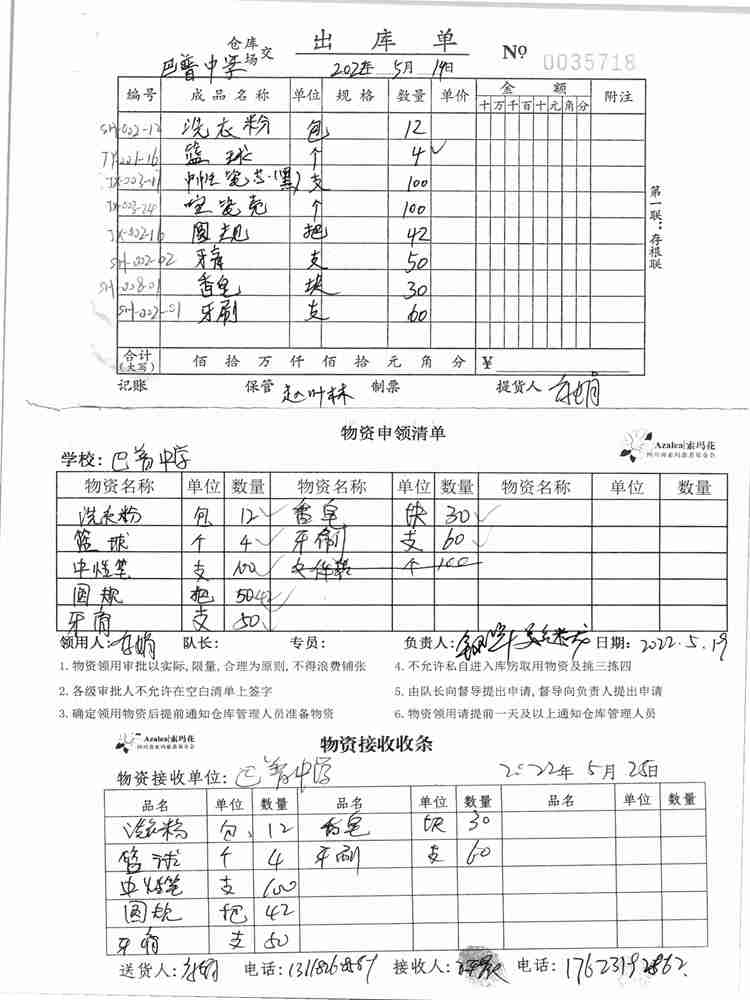 仓库 场 交 出 库 单 Nº 0035718
巴普中学 2022年 5月 19日
编号 成品名称 单位 规格 数量 单价 金额 附注
十 万 千 百 十 元 角 分
SH-002-12 洗衣粉 包 12
TY-221-16 篮球 个 4 ✓
JX-003-11 中性笔芯(黑) 支 100
JX-003-24 空笔壳 个 100
JX-002-16 圆规 把 42
SH-002-02 牙膏 支 50
SH-008-01 香皂 块 30
SH-002-01 牙刷 支 60
第一联:存根联
合计(大写) 佰 拾 万 仟 佰 拾 元 角 分 ¥
记账 保管 赵叶林 制票 提货人
物资申领清单
Azalea|索玛花
学校: 巴普中学
物资名称 单位 数量 物资名称 单位 数量 物资名称 单位 数量
洗衣粉 包 12 ✓ 香皂 块 30 ✓
篮球 个 4 ✓ 牙刷 支 60 ✓
中性笔 支 100 ✓ 文件袋 个 100
圆规 把 50 42 ✓
牙膏 支 50 ✓
领用人: 队长: 专员: 负责人: 日期: 2022.5.19
1. 物资领用审批以实际,限量,合理为原则,不得浪费铺张 4. 不允许私自进入库房取用物资及挑三拣四
2. 各级审批人不允许在空白清单上签字 5. 由队长向督导提出申请,督导向负责人提出申请
3. 确定领用物资后提前通知仓库管理人员准备物资 6. 物资领用请提前一天及以上通知仓库管理人员
Azalea|索玛花
物资接收收条
物资接收单位: 巴普中学 2022年 5月 25日
品名 单位 数量 品名 单位 数量 品名 单位 数量
洗衣粉 包 12 香皂 块 30
篮球 个 4 牙刷 支 60
中性笔 支 100
圆规 把 42
牙膏 支 50
送货人: 电话: 接收人: 电话: 17623192862